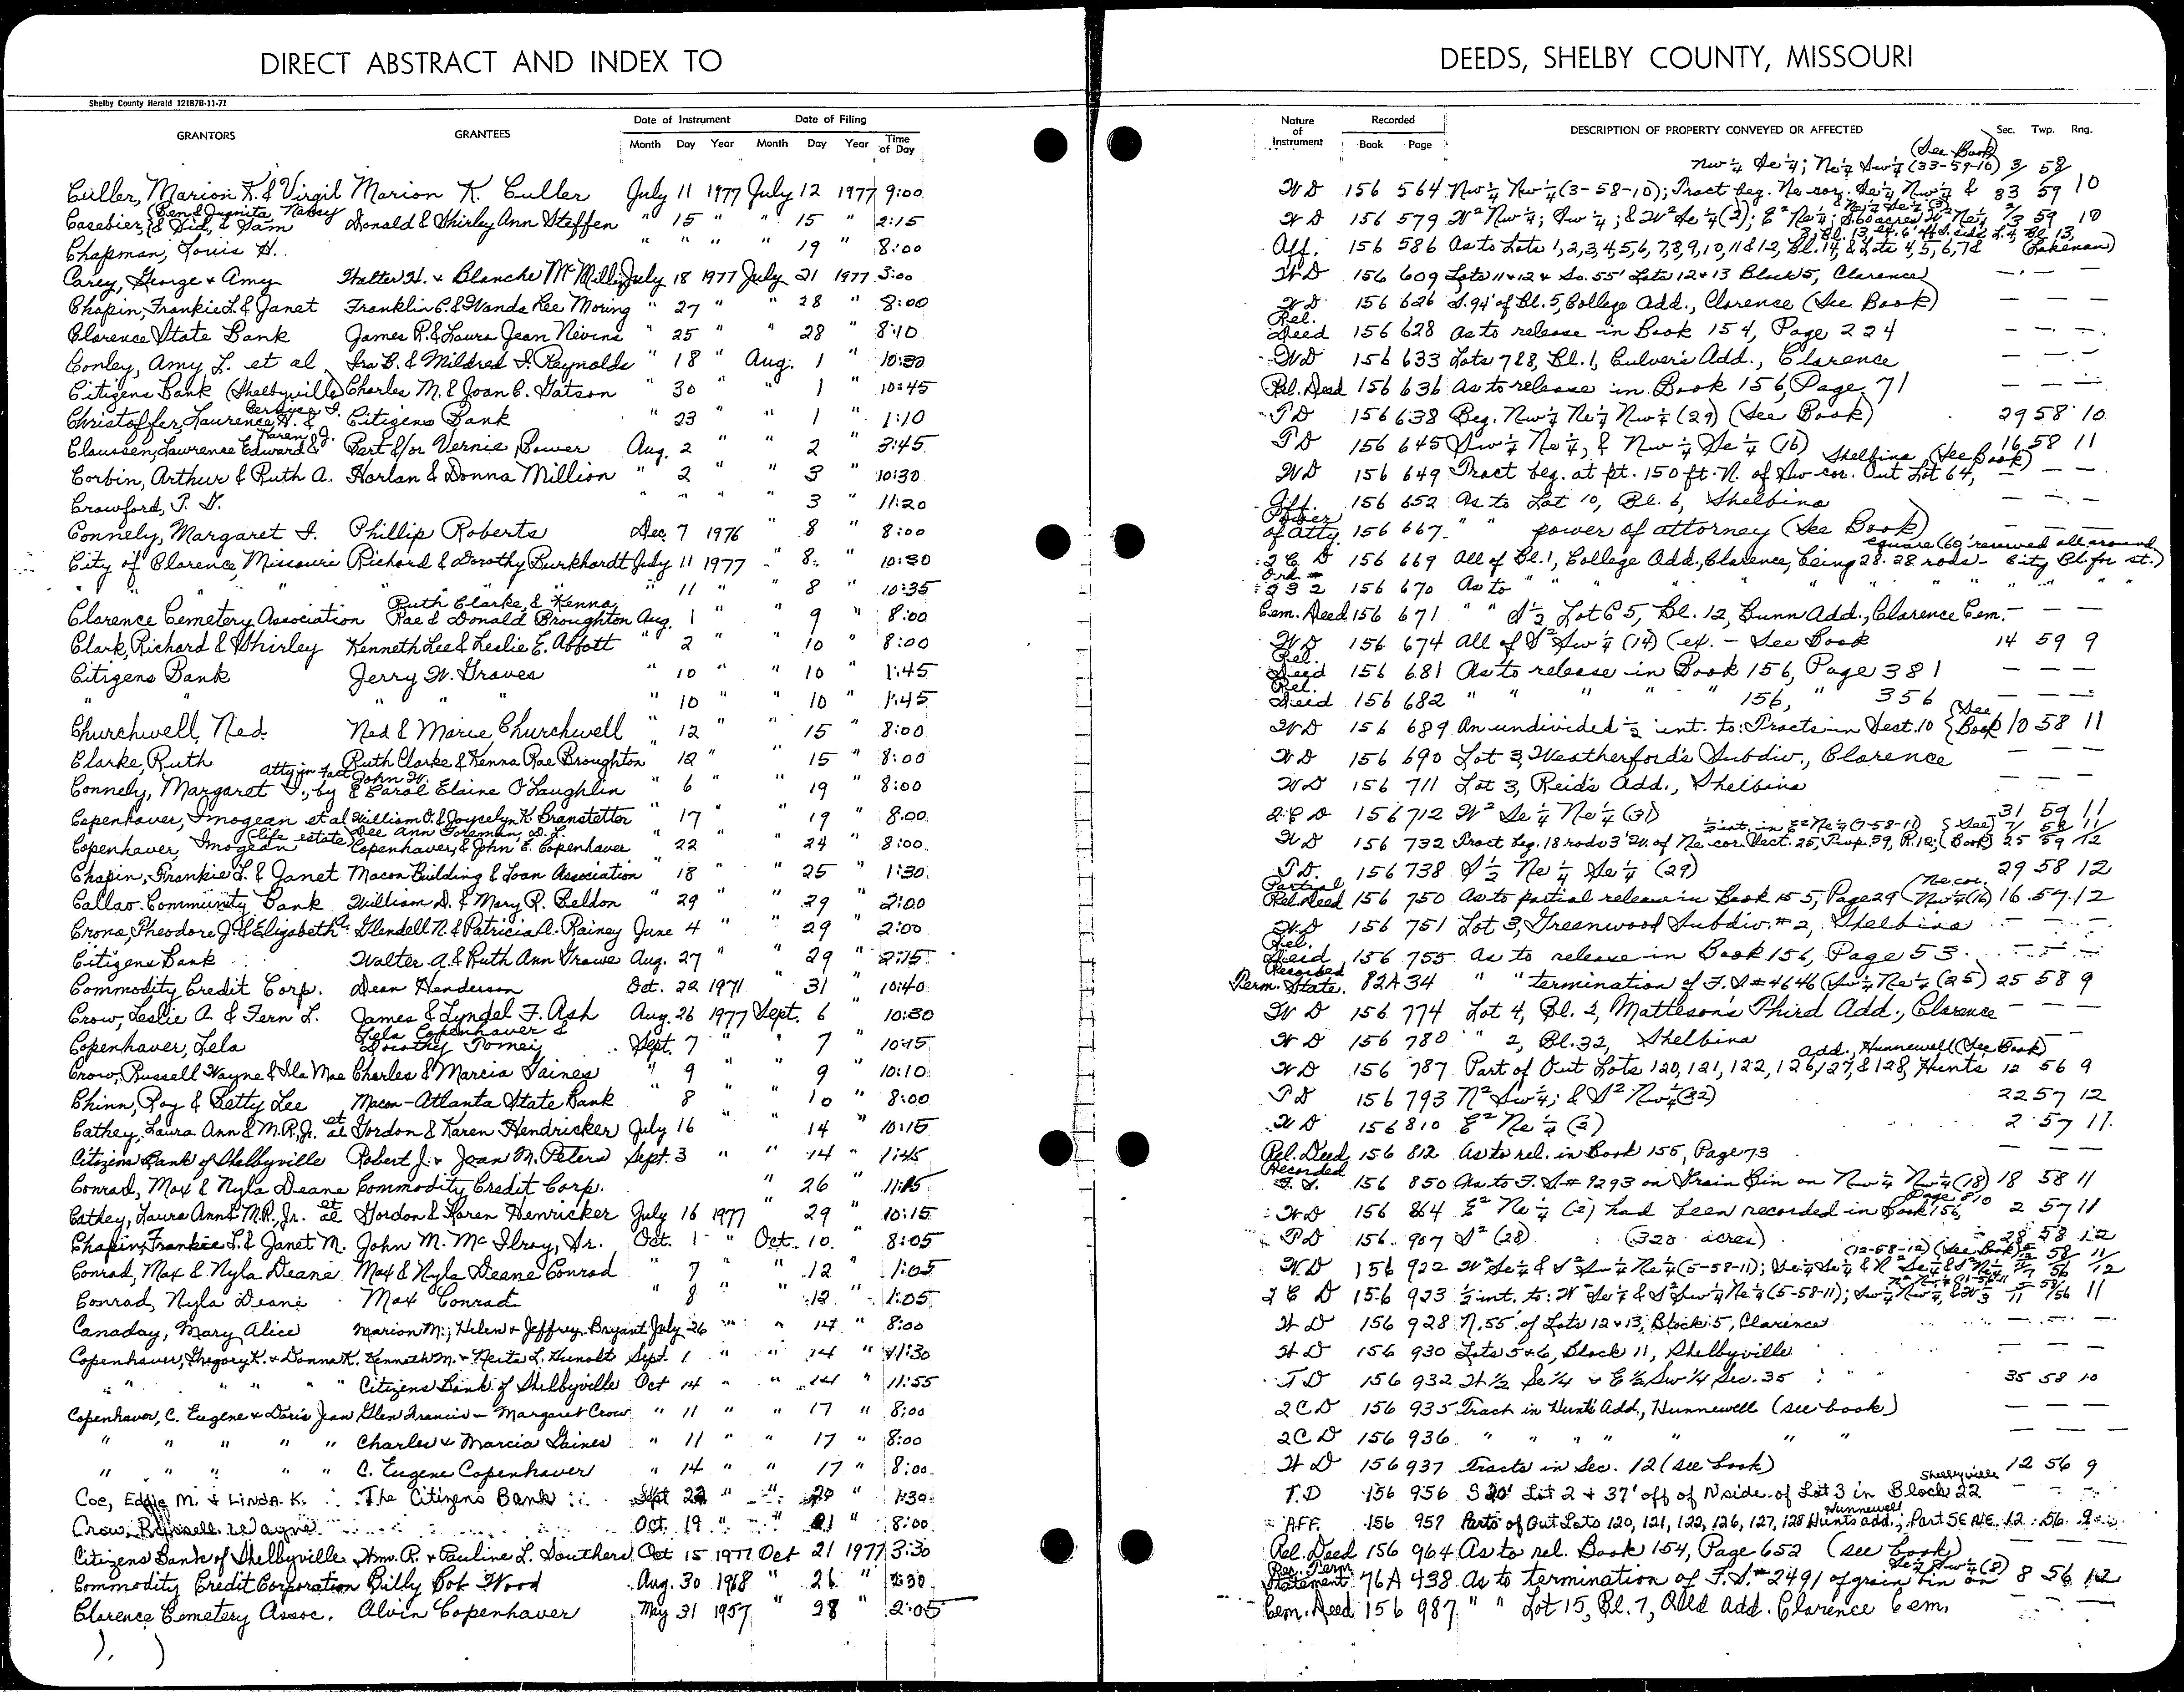 DIRECT ABSTRACT AND INDEX TO
DEEDS, SHELBY COUNTY, MISSOURI
Shelby County Herald 12187B-11-71
GRANTORS GRANTEES Date of Instrument Month Day Year Date of Filing Month Day Year Time of Day
Nature of Instrument Recorded Book Page DESCRIPTION OF PROPERTY CONVEYED OR AFFECTED Sec. Twp. Rng.
(See Book)
Nw¼ Se¼; Ne¼ Sw¼ (33-59-10) 3 58
Culler, Marion K. & Virgil Marion K. Culler July 11 1977 July 12 1977 9:00 WD 156 564 Nw¼ Nw¼ (3-58-10); Tract beg. Ne cor. Se¼ Nw¼ & 33 59 10
Casabier, (Ben & Juanita, Nancy & Sid, & Sam Donald & Shirley Ann Steffen " 15 " " 15 " 2:15 WD 156 579 W² Nw¼; Sw¼; & W² Se¼ (2); E² Ne¼; S.60 acres W² Ne¼ & Ne¼ Se¼ (3) 2/3 59 10
Chapman, Louis H. " " " " 19 " 8:00 Aff. 156 586 As to Lots 1,2,3,4,5,6,7,8,9,10,11 & 12, Bl. 14, & Lots 4,5,6,7,8 Lakenan)
Carey, George & Amy Walter H. & Blanche McMilley July 18 1977 July 21 1977 3:00 WD 156 609 Lots 11 & 12 & So. 55' Lots 12 & 13 Block 5, Clarence — — —
Chapin, Frankie L. & Janet Franklin C. & Wanda Lee Moring " 27 " " 28 " 8:00 WD 156 626 S.94' of Bl. 5, College Add., Clarence (See Book) — — —
Clarence State Bank James R. & Laura Jean Nevins " 25 " " 28 " 8:10 Rel. Deed 156 628 As to release in Book 154, Page 224 — — —
Conley, Amy L. et al Ira B. & Mildred I. Reynolds " 18 " Aug. 1 " 10:30 WD 156 633 Lots 7 & 8, Bl. 1, Culver's Add., Clarence — — —
Citizens Bank (Shelbyville) Charles M. & Joan C. Watson " 30 " " 1 " 10:45 Rel. Deed 156 636 As to release in Book 156, Page 71 — — —
Christoffer, Laurence H. & Citizens Bank " 23 " 1 " 1:10 TD 156 638 Beg. Nw¼ Ne¼ Nw¼ (29) (See Book) 29 58 10
Claussen, Lawrence Edward & Karen J. Bert &/or Vernie Bower Aug. 2 " " 2 " 3:45 TD 156 645 Sw¼ Ne¼, & Nw¼ Se¼ (16) 16 58 11
Corbin, Arthur & Ruth A. Harlan & Donna Million " 2 " " 3 " 10:30 WD 156 649 Tract beg. at pt. 150 ft. N. of Sw cor. Out Lot 64, Shelbina (See Book) — — —
Crawford, T. D. " " " " 3 11:20 Aff. 156 652 As to Lot 10, Bl. 6, Shelbina — — —
Connely, Margaret I. Phillip Roberts Dec. 7 1976 " 8 " 8:00 Power of Atty. 156 667 " " power of attorney (See Book) — — —
City of Clarence, Missouri Richard & Dorothy Burkhardt July 11 1977 " 8 " 10:30 2 C D 156 669 All of Bl. 1, College Add., Clarence, being 28.28 rods square (60' reserved all around City Bl. for st.)
" " " " " " " 11 " 8 " 10:35 Ord. # 232 156 670 As to " " " " " " "
Clarence Cemetery Association Ruth Clarke, & Kenna Rae & Donald Broughton Aug. 1 " " 9 " 8:00 Cem. Deed 156 671 " " S½ Lot 65, Bl. 12, Bunn Add., Clarence Cem. — — —
Clark, Richard & Shirley Kenneth Lee & Leslie E. Abbott " 2 " " 10 " 8:00 WD 156 674 All of S² Sw¼ (14) (ex. — See Book 14 59 9
Citizens Bank Jerry W. Graves " 10 " " 10 " 1:45 Rel. Deed 156 681 As to release in Book 156, Page 381 — — —
" " " " " " 10 " " 10 " 1:45 Rel. Deed 156 682 " " " " " 156, " 356 — — —
Churchwell, Ned Ned & Marie Churchwell " 12 " " 15 " 8:00 WD 156 689 An undivided ½ int. to: Tracts in Sect. 10 (See Book) 10 58 11
Clarke, Ruth Ruth Clarke & Kenna Rae Broughton " 12 " " 15 " 8:00 WD 156 690 Lot 3, Weatherford's Subdiv., Clarence — — —
Connely, Margaret I., by atty in fact John W. & Carol Elaine O'Laughlin " 6 " " 19 " 8:00 WD 156 711 Lot 3, Reid's Add., Shelbina — — —
Copenhaver, Imogean et al William O. & Joycelyn K. Branstetter " 17 " " 19 " 8:00 2CD 156 712 W² Se¼ Ne¼ (31) 31 59 11
Copenhaver, Imogean (life estate) Dee Ann Foreman, D. L. Copenhaver, & John E. Copenhaver " 22 " " 24 " 8:00 WD 156 732 Tract beg. 18 rods 3' W. of Ne cor. Sect. 25, Twp. 59, R. 12; ½ int. in E² Ne¼ (7-58-11) (See Book) 7 58 11 25 59 12
Chapin, Frankie L. & Janet Macon Building & Loan Association " 18 " " 25 " 1:30 TD. 156 738 S½ Ne¼ Se¼ (29) 29 58 12
Callao Community Bank William D. & Mary R. Beldon " 29 " " 29 " 2:00 Partial Rel. Deed 156 750 As to partial release in Book 155, Page 29 (Ne cor. Nw¼ (16) 16 57 12
Crona, Theodore J. & Elizabeth A. Glendell N. & Patricia A. Rainey June 4 " " 29 " 2:00 WD 156 751 Lot 3, Greenwood Subdiv. #2, Shelbina — — —
Citizens Bank Walter A. & Ruth Ann Growe Aug. 27 " " 29 " 2:15 Rel. Deed 156 755 As to release in Book 156, Page 53 — — —
Commodity Credit Corp. Dean Henderson Oct. 22 1971 " 31 " 10:40 Recorded Term. State. 82A 34 " " termination of F.S. #4646 (Sw¼ Ne¼ (25) 25 58 9
Crow, Leslie A. & Fern L. James & Lyndel F. Ash Aug. 26 1977 Sept. 6 " 10:30 WD 156 774 Lot 4, Bl. 2, Matteson's Third Add., Clarence — — —
Copenhaver, Lela Lela Copenhaver & Dorothy Tomei Sept. 7 " " 7 " 10:15 WD 156 780 " 2, Bl. 32, Shelbina — —
Crow, Russell Wayne & Ila Mae Charles & Marcia Gaines " 9 " " 9 " 10:10 WD 156 787 Part of Out Lots 120, 121, 122, 126, 127, & 128, Hunts Add., Hunnewell (See Book) 12 56 9
Chinn, Roy & Betty Lee Macon-Atlanta State Bank " 8 " " 10 " 8:00 TD 156 793 N² Sw¼; & S² Nw¼ (22) 22 57 12
Cathey, Laura Ann & M.R., Jr. et al Gordon & Karen Hendricker July 16 " " 14 " 10:15 WD 156 810 E² Ne¼ (2) 2 57 11
Citizens Bank of Shelbyville Robert J. & Joan M. Peters Sept. 3 " " 14 " 1:45 Rel. Deed 156 812 As to rel. in Book 155, Page 73 — —
Conrad, Max & Nyla Deane Commodity Credit Corp. " 26 " 11:15 Recorded F. S. 156 850 As to F. S. # 9293 on Grain Bin on Nw¼ Nw¼ (18) 18 58 11
Cathey, Laura Ann & M.R., Jr. et al Gordon & Karen Henricker July 16 1977 " 29 " 10:15 WD 156 864 E² Ne¼ (2) had been recorded in Book 156, Page 810 2 57 11
Chapin, Frankie L. & Janet M. John M. McIlroy, Sr. Oct. 1 " Oct. 10 " 8:05 TD 156 907 S² (28) (320 acres) 28 58 12
Conrad, Max & Nyla Deane Max & Nyla Deane Conrad " 7 " " 12 " 1:05 WD 156 922 W² Se¼ & S² Sw¼ Ne¼ (5-58-11); (12-58-12) (See Book)
Conrad, Nyla Deane Max Conrad " 8 " 12 " 1:05 2 C D 156 923 ½ int. to: W² Se¼ & S² Sw¼ Ne¼ (5-58-11);
Canaday, Mary Alice Marion M.; Helen & Jeffrey Bryant July 26 " " 14 " 8:00 WD 156 928 N. 55' of Lots 12 & 13, Block 5, Clarence — — —
Copenhaver, Gregory K. & Donna K. Kenneth M. & Neita L. Hunolt Sept. 1 " " 14 " 11:30 WD 156 930 Lots 5 & 6, Block 11, Shelbyville — — —
" " " " " Citizens Bank of Shelbyville Oct 14 " " 14 " 11:55 TD 156 932 W ½ Se ¼ & E ½ Sw ¼ Sec. 35 35 58 10
Copenhaver, C. Eugene & Doris Jean Glen Francis & Margaret Crow " 11 " " 17 " 8:00 2CD 156 935 Tract in Hunts Add., Hunnewell (see book) — — —
" " " " " Charles & Marcia Gaines " 11 " " 17 " 8:00 2CD 156 936 " " " " " " " — — —
" " " " " C. Eugene Copenhaver " 14 " " 17 " 8:00 WD 156 937 Tracts in Sec. 12 (see book) 12 56 9
Coe, Eddie M. & Linda K. The Citizens Bank Sept 22 " " 20 " 1:30 T.D 156 956 S 20' Lot 2 & 37' off of N side of Lot 3 in Block 22 Shelbyville — — —
Crow, Russell Wayne Oct. 19 " " 21 " 8:00 AFF. 156 957 Parts of Out Lots 120, 121, 122, 126, 127, 128 Hunts add.; Hunnewell Part SE NE 12 56 9
Citizens Bank of Shelbyville Wm. R. & Pauline L. Southers Oct 15 1977 Oct 21 1977 3:30 Rel. Deed 156 964 As to rel. Book 154, Page 652 (see book) — — —
Commodity Credit Corporation Billy Bob Wood Aug. 30 1968 " 26 " 2:30 Rec. Term. Statement 76A 438 As to termination of F.S. # 2491 of grain bin on Se¼ Sw¼ (8) 8 56 12
Clarence Cemetery Assoc. Alvin Copenhaver May 31 1957 " 28 " 2:05 Cem. Deed 156 987 " " Lot 15, Bl. 7, Old Add. Clarence Cem. — — —